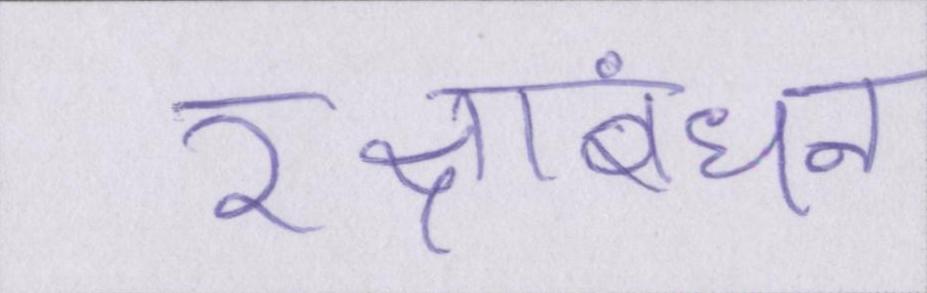 रक्षाबंधन